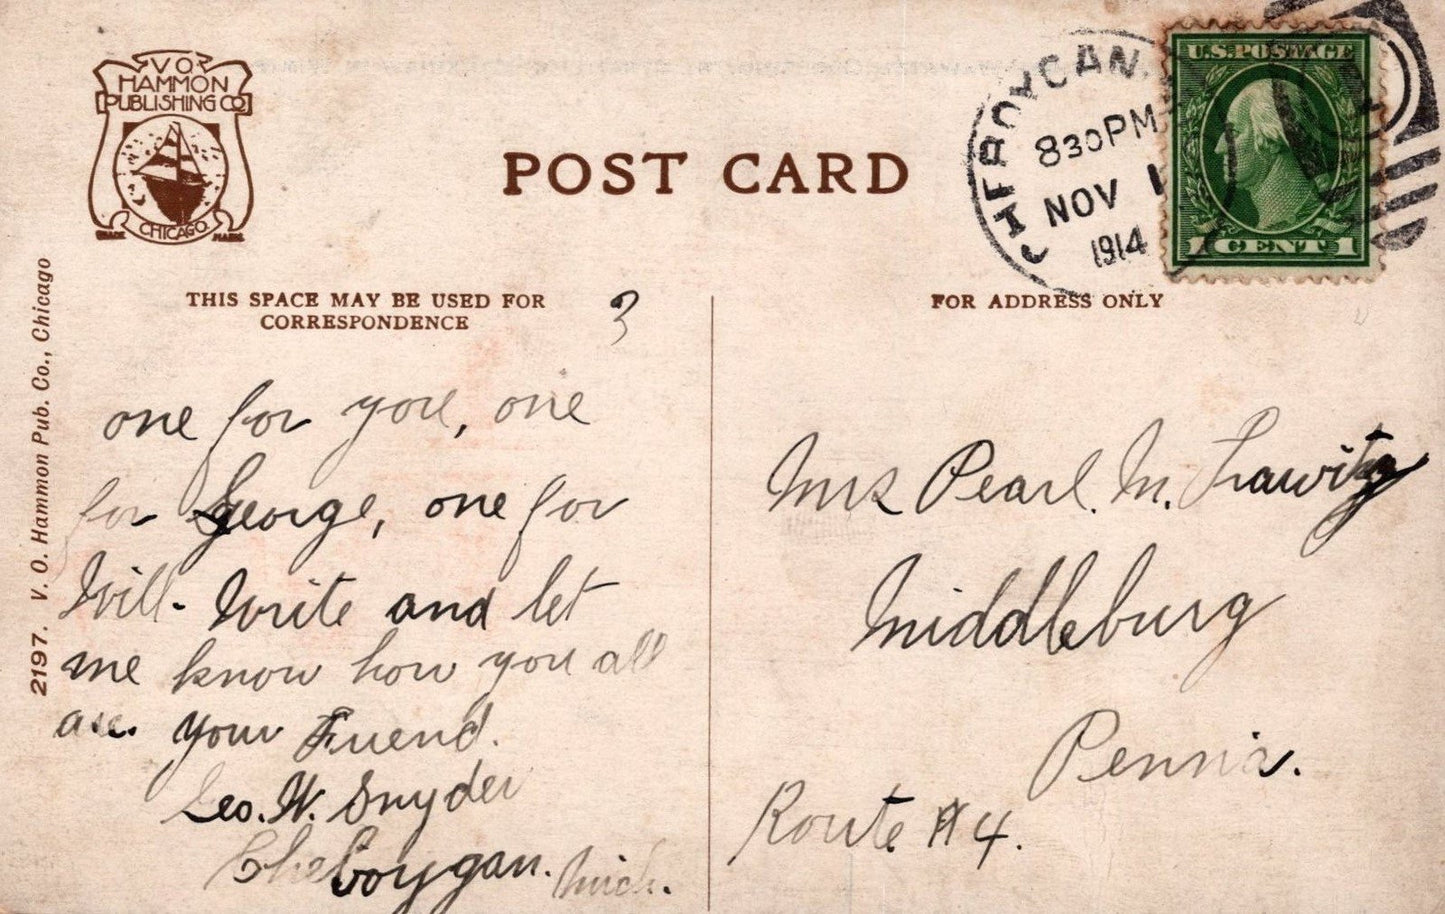 V. O.
HAMMON
PUBLISHING CO.
CHICAGO
TRADE MARK
POST CARD
CHEBOYGAN,
830PM
NOV 1
1914
U.S. POSTAGE
1 CENT 1
THIS SPACE MAY BE USED FOR
CORRESPONDENCE
3
FOR ADDRESS ONLY
2197. V. O. Hammon Pub. Co., Chicago
one for you, one
for George, one for
Will. Write and let
me know how you all
are. Your Friend.
Geo. W. Snyder
Cheboygan. Mich.
Mrs Pearl. M.
Middleburg
Penn'a.
Route #4.